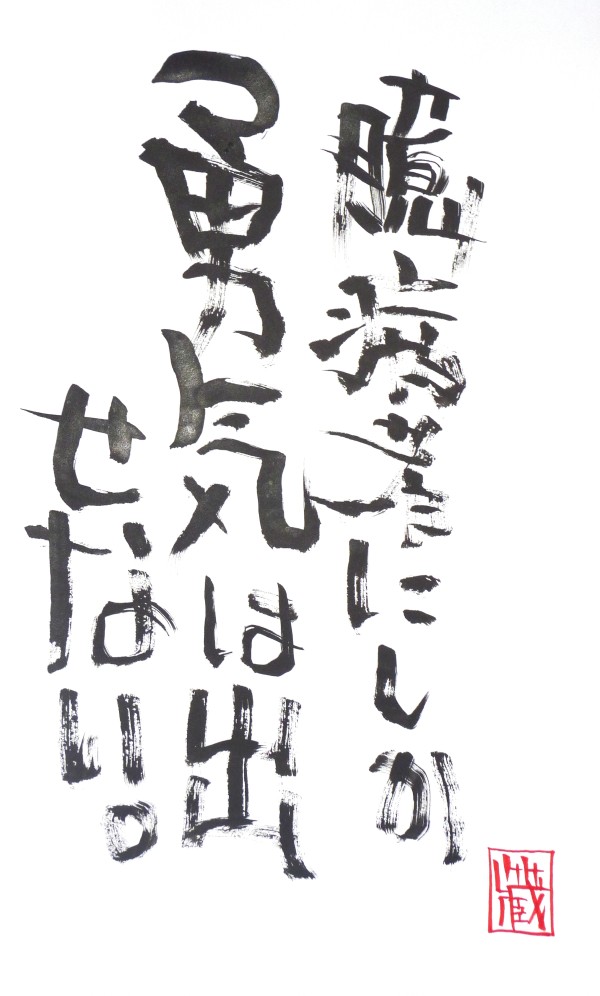 臆病者にしか
勇気は出
せない。
蔵